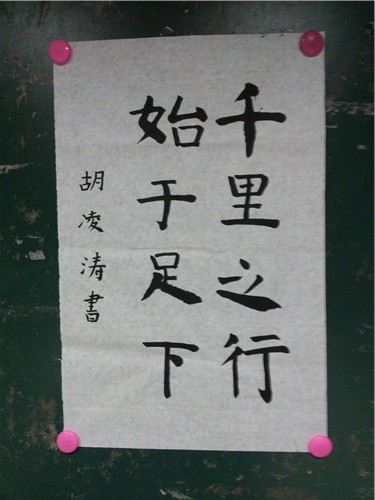 千里之行
始于足下
胡凌涛書